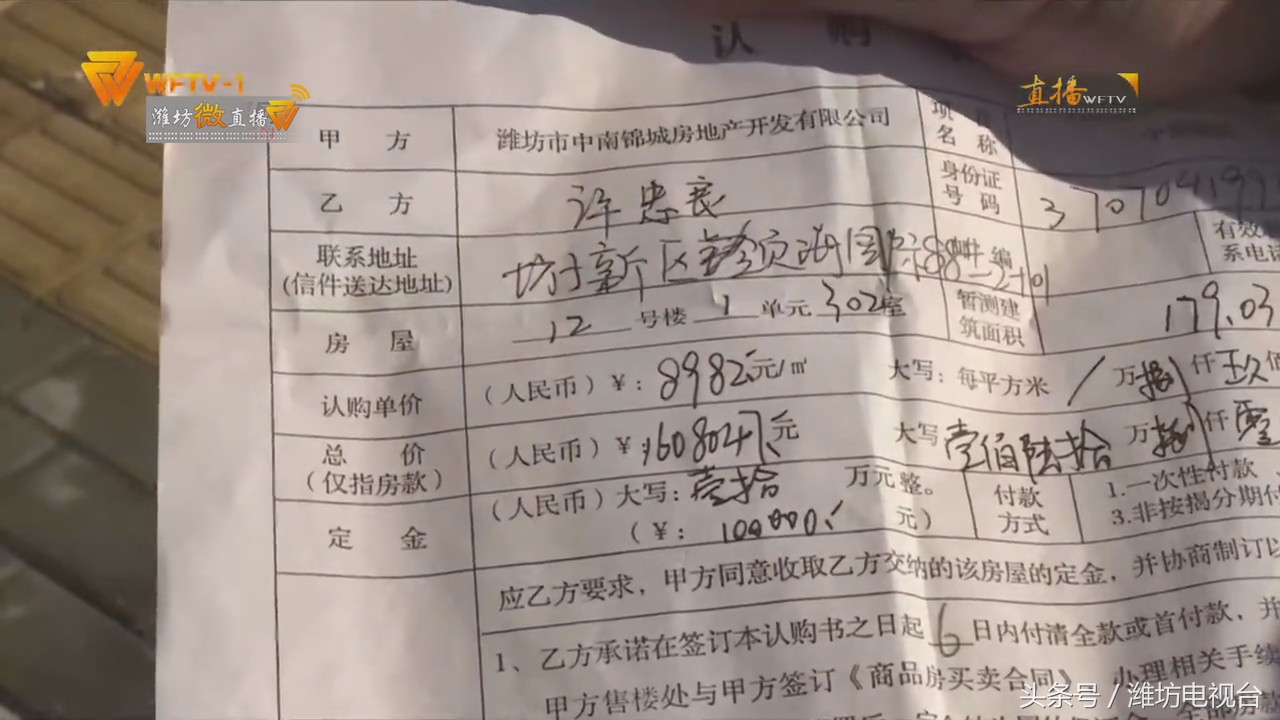 WFTV-1
潍坊微直播
直播WFTV
认 购
甲 方 潍坊市中南锦城房地产开发有限公司 项 名 称
乙 方 许忠良 身份证号码 3707041995
联系地址
(信件送达地址) 坊子新区 国际88-2-101 编
有效
系电话
房 屋 12 号楼 1 单元 302室 暂测建筑面积 179.03
认购单价 (人民币)¥: 8982元/㎡ 大写: 每平方米 / 万捌仟玖佰
总 价
(仅指房款) (人民币)¥ 1608047元 大写 壹佰陆拾万捌仟零
定 金 (人民币)大写: 壹拾 万元整。
(¥: 100000 元)
付款方式
1.一次性付款
3.非按揭分期付
应乙方要求,甲方同意收取乙方交纳的该房屋的定金,并协商制订以
1、乙方承诺在签订本认购书之日起6日内付清全款或首付款,并
甲方售楼处与甲方签订《商品房买卖合同》,办理相关手续
头条号 / 潍坊电视台